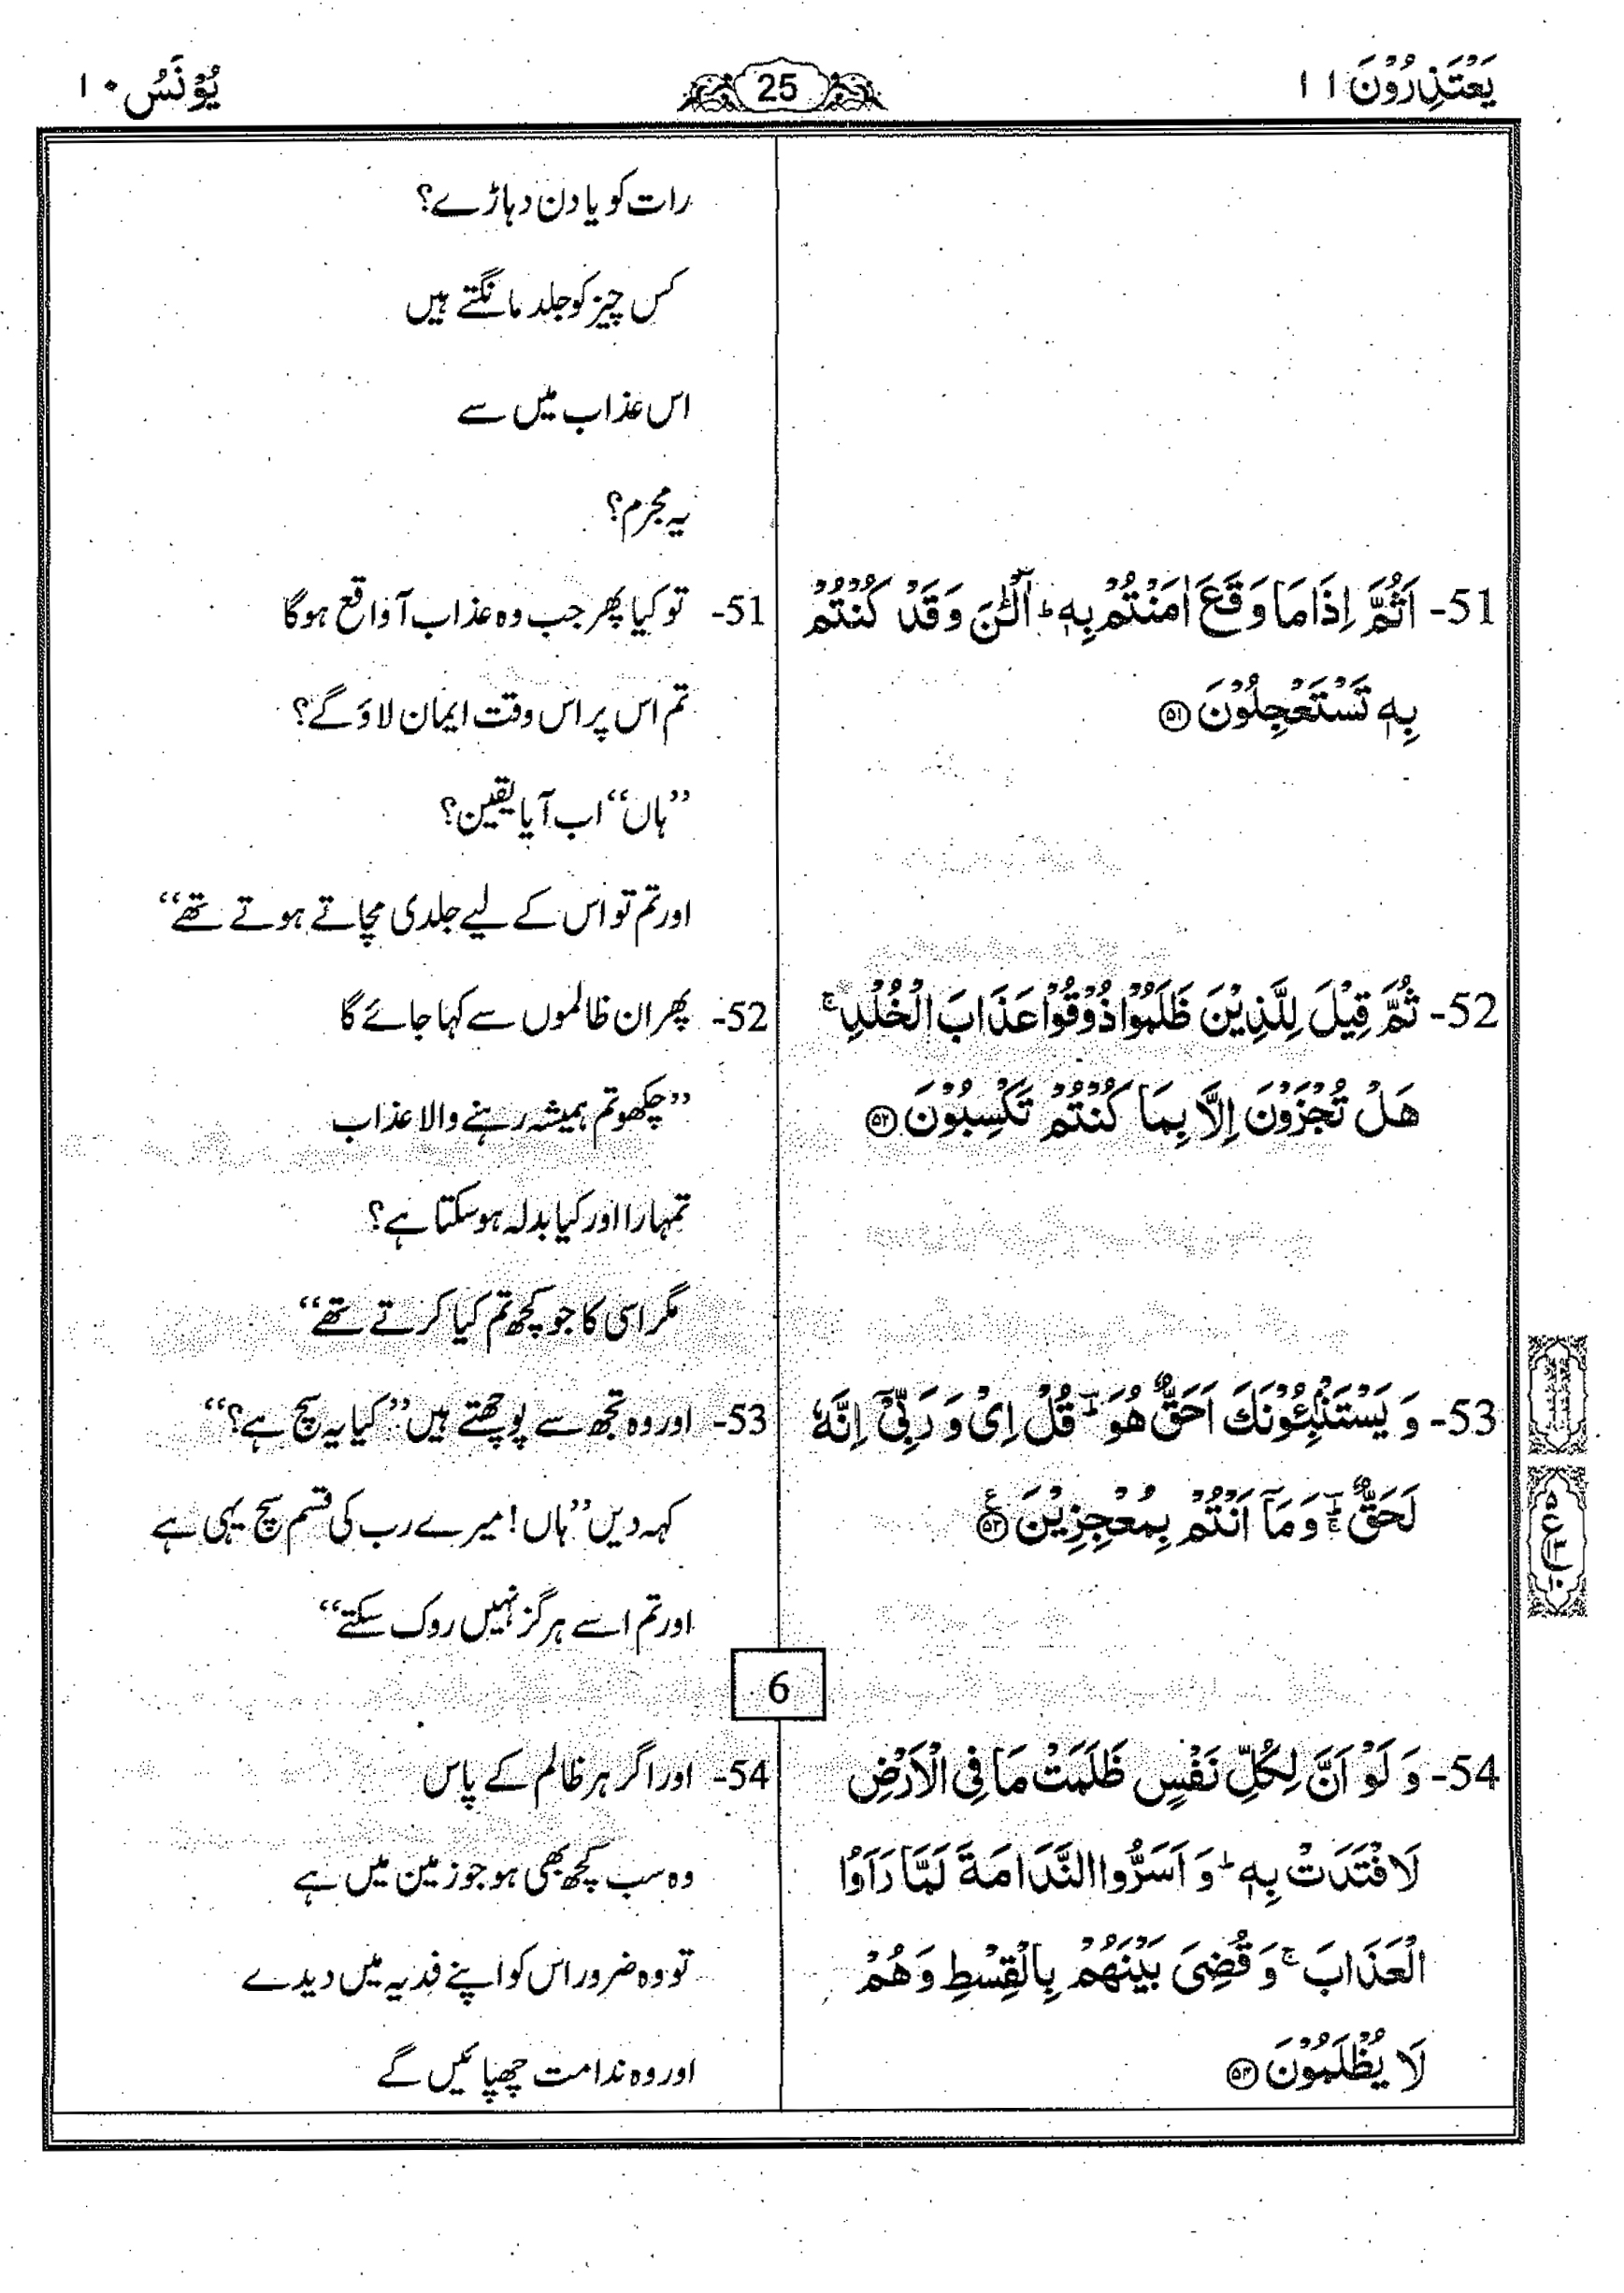 یَعْتَذِرُوْنَ ۱۱
25
یُوْنَس ۱۰
رات کو یا دن دہاڑے؟
کس چیز کو جلد مانگتے ہیں
اس عذاب میں سے
یہ مجرم؟
51- اَثُمَّ اِذَا مَا وَقَعَ اٰمَنْتُمْ بِهٖ ؕ آٰلْـٰٔنَ وَ قَدْ كُنْتُمْ
بِهٖ تَسْتَعْجِلُوْنَ ﴿۵۱﴾
51- تو کیا پھر جب وہ عذاب آ واقع ہوگا
تم اس پر اس وقت ایمان لاؤ گے؟
”ہاں“ اب آیا یقین؟
اور تم تو اس کے لیے جلدی مچاتے ہوتے تھے“
52- ثُمَّ قِیْلَ لِلَّذِیْنَ ظَلَمُوْا ذُوْقُوْا عَذَابَ الْخُلْدِ ۚ
هَلْ تُجْزَوْنَ اِلَّا بِمَا كُنْتُمْ تَكْسِبُوْنَ ﴿۵۲﴾
52- پھر ان ظالموں سے کہا جائے گا
”چکھو تم ہمیشہ رہنے والا عذاب
تمہارا اور کیا بدلہ ہو سکتا ہے؟
مگر اسی کا جو کچھ تم کیا کرتے تھے“
53- وَ یَسْتَنْۢبِـُٔوْنَكَ اَحَقٌّ هُوَ ؔؕ قُلْ اِیْ وَ رَبِّیْۤ اِنَّهٗ
لَحَقٌّ ؔۚ وَ مَاۤ اَنْتُمْ بِمُعْجِزِیْنَ ﴿۵۳﴾
53- اور وہ تجھ سے پوچھتے ہیں ”کیا یہ سچ ہے؟“
کہہ دیں ”ہاں! میرے رب کی قسم سچ یہی ہے
اور تم اسے ہرگز نہیں روک سکتے“
6
54- وَ لَوْ اَنَّ لِكُلِّ نَفْسٍ ظَلَمَتْ مَا فِی الْاَرْضِ
لَافْتَدَتْ بِهٖ ؕ وَ اَسَرُّوا النَّدَامَةَ لَمَّا رَاَوُا
الْعَذَابَ ۚ وَ قُضِیَ بَیْنَهُمْ بِالْقِسْطِ وَ هُمْ
لَا یُظْلَمُوْنَ ﴿۵۴﴾
54- اور اگر ہر ظالم کے پاس
وہ سب کچھ بھی ہو جو زمین میں ہے
تو وہ ضرور اس کو اپنے فدیہ میں دیدے
اور وہ ندامت چھپائیں گے